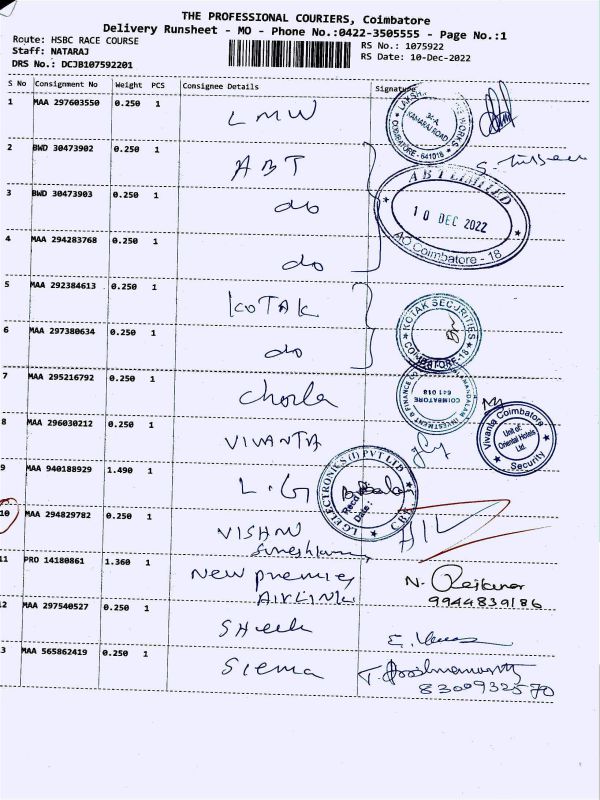 THE PROFESSIONAL COURIERS, Coimbatore
Delivery Runsheet - MO - Phone No.:0422-3505555 - Page No.:1
Route: HSBC RACE COURSE
Staff: NATARAJ
DRS No.: DCJB107592201
RS No.: 1075922
RS Date: 10-Dec-2022
S No Consignment No Weight PCS Consignee Details Signature
1 MAA 297603550 0.250 1 LMW
KAMARAJ ROAD
COIMBATORE - 641018
2 BWD 30473902 0.250 1 ABT
3 BWD 30473903 0.250 1 do
ABT LIMITED
10 DEC 2022
AO Coimbatore - 18
4 MAA 294283768 0.250 1 do
5 MAA 292384613 0.250 1 KOTAK
KOTAK SECURITIES
COIMBATORE-18
6 MAA 297380634 0.250 1 do
7 MAA 295216792 0.250 1 Chola
INVESTMENT & FINANCE CO
COIMBATORE
641 018
8 MAA 296030212 0.250 1 VIVANTA
Vivanta Coimbatore
Unit of:
Oriental Hotels
Ltd.
Security
9 MAA 940188929 1.490 1 L.G
LG ELECTRONICS (I) PVT LTD
Date:
10 MAA 294829782 0.250 1 VISHNU
11 PRO 14180861 1.360 1 New premier
AIRLINK
N. Rajkumar
9944839186
12 MAA 297540527 0.250 1
3 MAA 565862419 0.250 1
T. Krishnamoorthy
8300932570